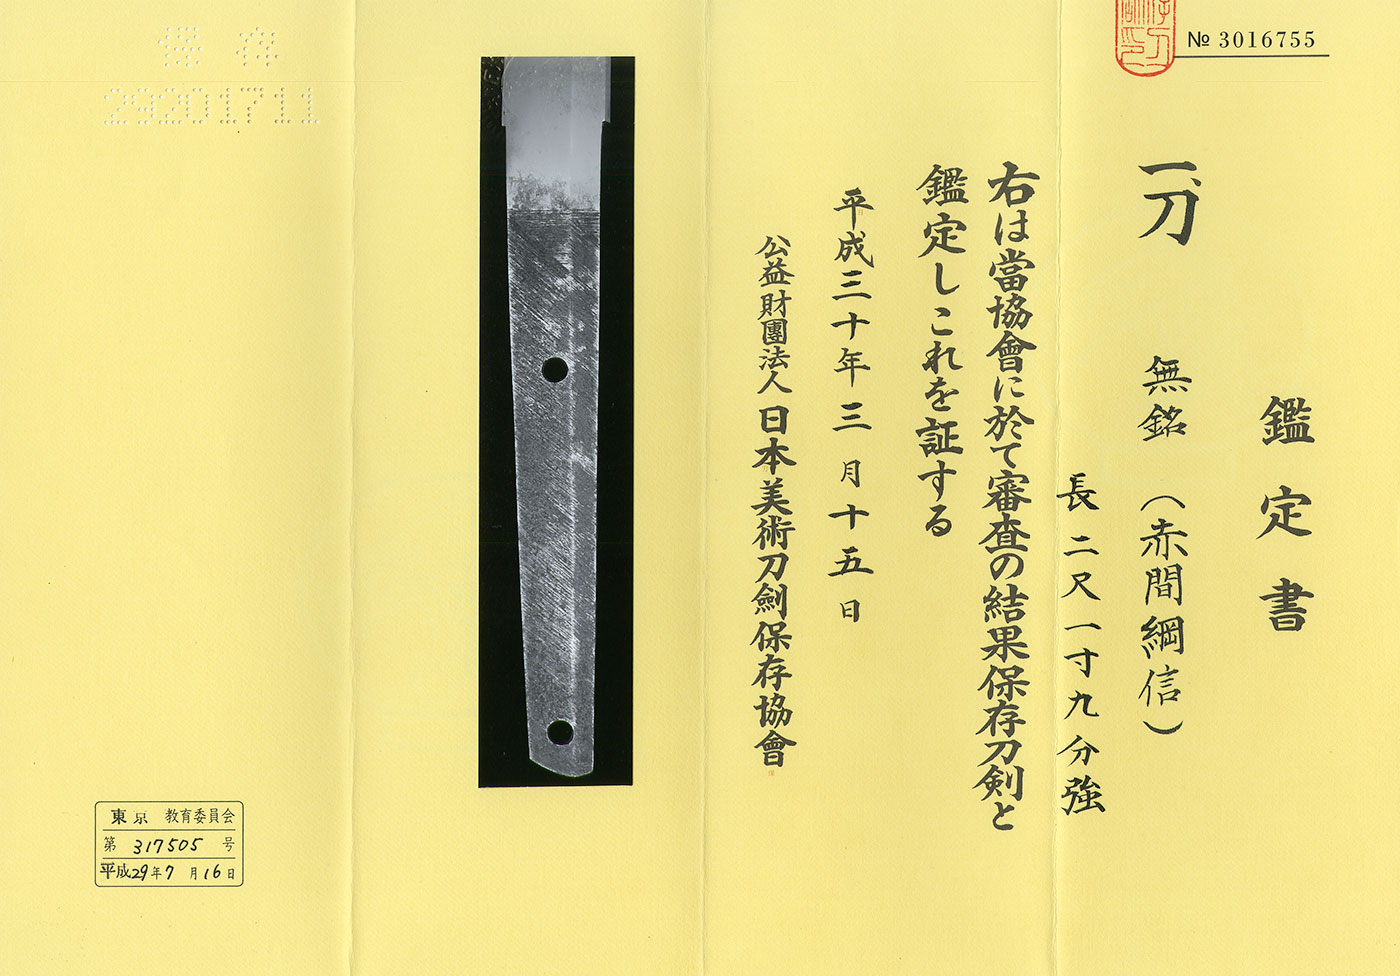 № 3016755
鑑定書
一、刀 無銘(赤間綱信)
長二尺一寸九分強
右は當協會に於て審査の結果保存刀剣と
鑑定しこれを証する
平成三十年三月十五日
公益財團法人日本美術刀劍保存協會
保存
29201711
東京 教育委員会
第 317505 号
平成29年7月16日